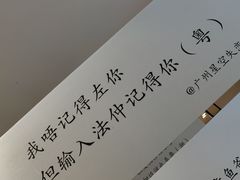 我唔记得左你
但输入法仲记得你（粤）
@广州星空失恋